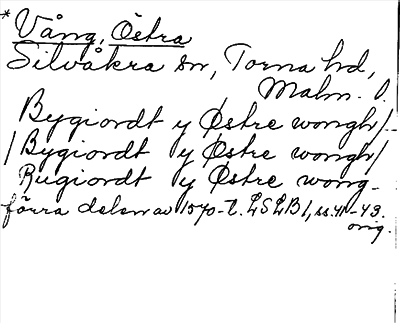 * Vång, Östra
Silvåkra sn, Torna hd,
Malm. l.
Bygiordt y Østre wongh/
/Bygiordt y Østre wongh/
Rugiordt y Østre wong-
förra delen av 1570-t. LSLB 1, ss. 41-43.
orig.